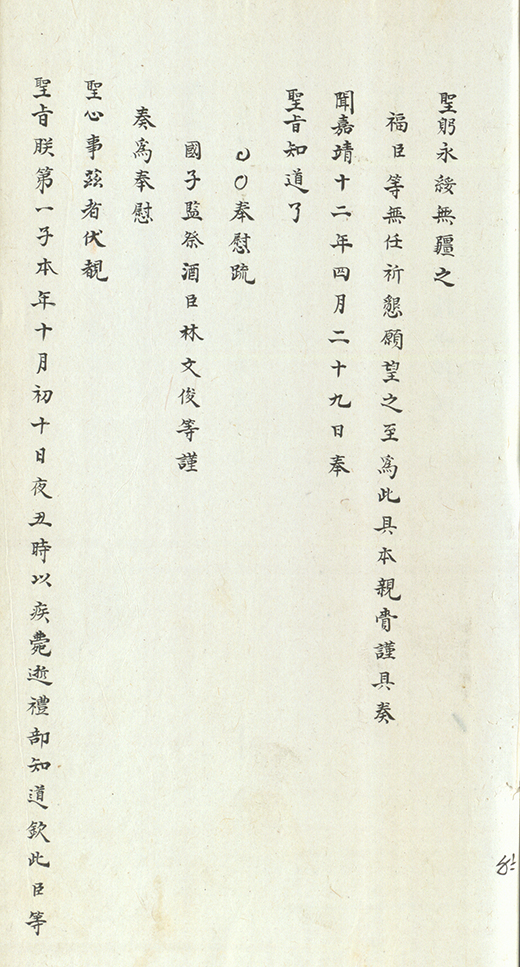 聖躬永綏無疆之
福臣等無任祈懇願望之至爲此具本親賫謹具奏
聞嘉靖十二年四月二十九日奉
聖旨知道了
○奉慰疏
國子監祭酒臣林文俊等謹
奏爲奉慰
聖心事茲者伏覩
聖旨朕第一子本年十月初十日夜丑時以疾薨逝禮部知道欽此臣等